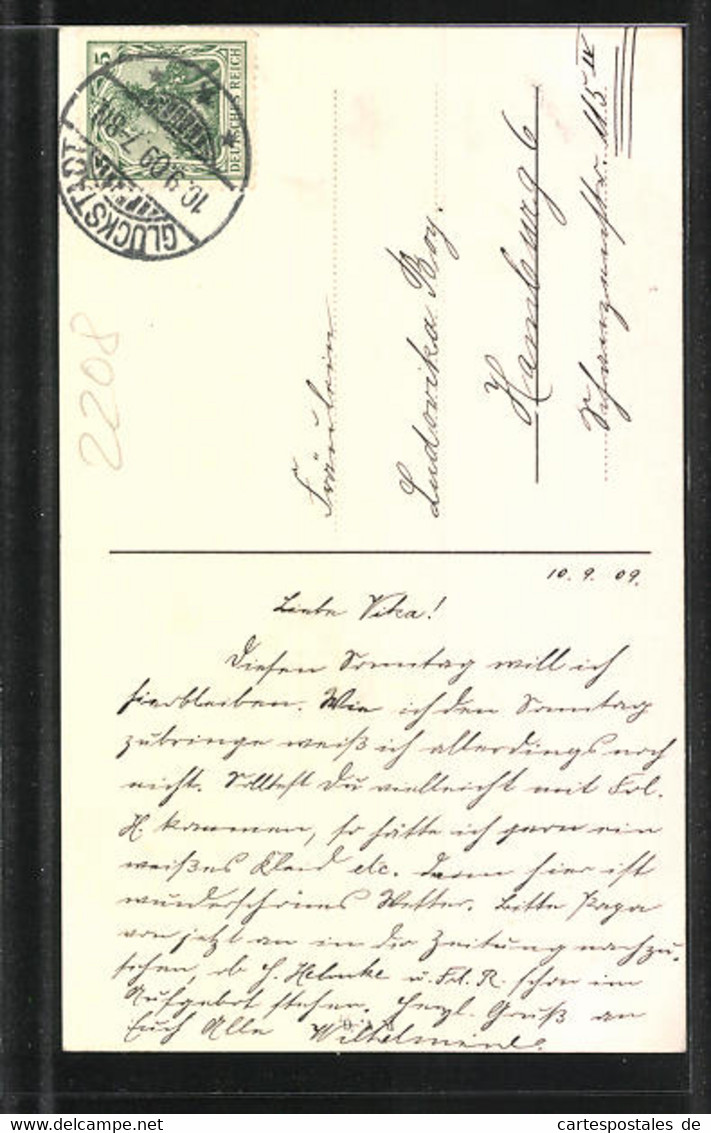 5
DEUTSCHES REICH
GLÜCKSTADT
10.9.09 7-8N.
2208
Fräulein
Ludovika Boy.
Hamburg 6
Schanzenstr. 115 IV
10. 9. 09.
Liebe Vika!
Diesen Sonntag will ich
hierbleiben. Wie ich den Sonntag
zubringe weiß ich allerdings noch
nicht. Solltest Du vielleicht mit Frl.
H. kommen, so hätte ich gern ein
weißes Kleid etc. denn hier ist
wunderschönes Wetter. Bitte Papa
von jetzt an in die Zeitung nachzu-
sehen, ob H. Helmke u. Frl. R. schon im
Aufgebot stehen. Herzl. Gruß an
Euch Alle Wilhelmine.
cartespostales de